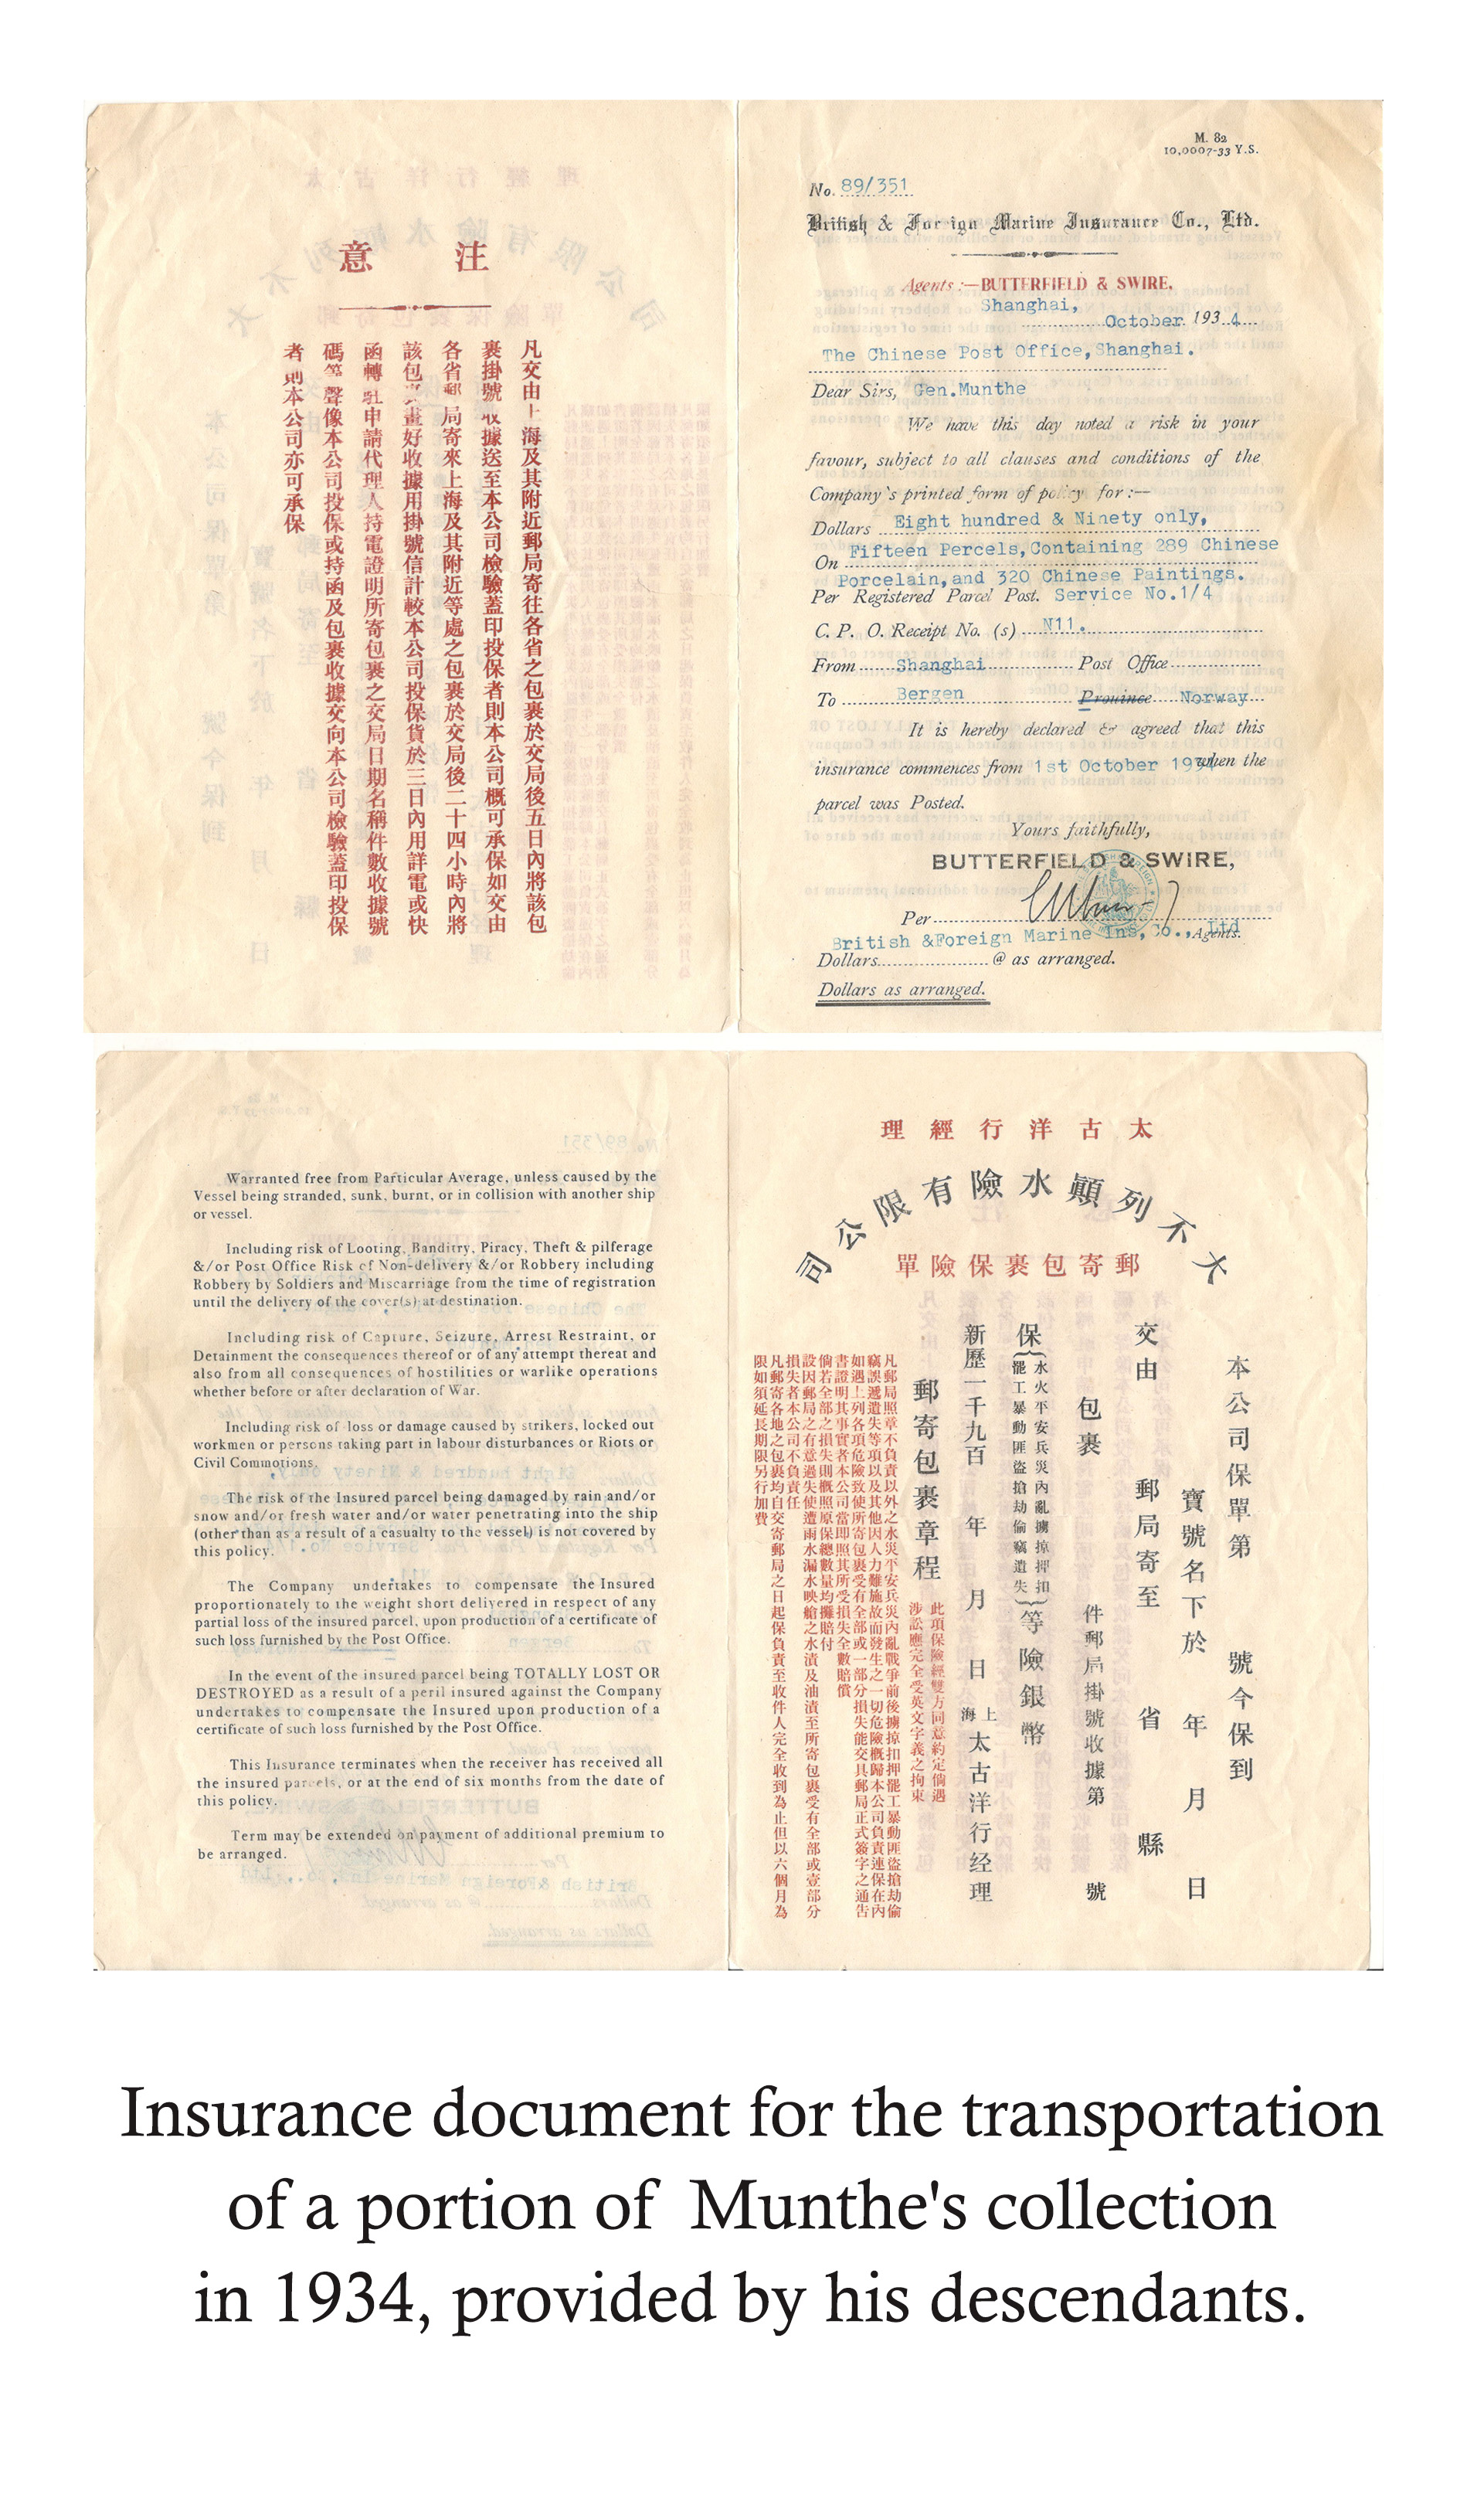 注意
凡交由上海及其附近郵局寄往各省之包裹於交局後五日內將該包
裹掛號收據送至本公司檢驗蓋印投保者則本公司概可承保如交由
各省郵局寄來上海及其附近等處之包裹於交局後二十四小時內將
該包畫好收據用掛號信計較本公司投保貨於三日內用詳電或快
函轉駐申請代理人持電證明所寄包裹之交局日期名稱件數收據號
碼等聲像本公司投保或持函及包裹收據交向本公司檢驗蓋印投保
者則本公司亦可承保
M. 82
10,0007-33 Y.S.
No. 89/351
British & Foreign Marine Insurance Co., Ltd.
Agents:—BUTTERFIELD & SWIRE,
Shanghai,
October 1934
The Chinese Post Office, Shanghai.
Dear Sirs, Gen.Munthe
We have this day noted a risk in your
favour, subject to all clauses and conditions of the
Company's printed form of policy for:—
Dollars Eight hundred & Ninety only,
On Fifteen Percels, Containing 289 Chinese
Porcelain, and 320 Chinese Paintings.
Per Registered Parcel Post. Service No.1/4
C. P. O. Receipt No. (s) N11.
From Shanghai Post Office
To Bergen Province Norway
It is hereby declared & agreed that this
insurance commences from 1st October 1934 when the
parcel was Posted.
Yours faithfully,
BUTTERFIELD & SWIRE,
Per
British &Foreign Marine Ins, Co., Ltd Agents.
Dollars @ as arranged.
Dollars as arranged.
Warranted free from Particular Average, unless caused by the
Vessel being stranded, sunk, burnt, or in collision with another ship
or vessel.
Including risk of Looting, Banditry, Piracy, Theft & pilferage
&/or Post Office Risk of Non-delivery &/or Robbery including
Robbery by Soldiers and Miscarriage from the time of registration
until the delivery of the cover(s) at destination.
Including risk of Capture, Seizure, Arrest Restraint, or
Detainment the consequences thereof or of any attempt thereat and
also from all consequences of hostilities or warlike operations
whether before or after declaration of War.
Including risk of loss or damage caused by strikers, locked out
workmen or persons taking part in labour disturbances or Riots or
Civil Commotions.
The risk of the Insured parcel being damaged by rain and/or
snow and/or fresh water and/or water penetrating into the ship
(other than as a result of a casualty to the vessel) is not covered by
this policy.
The Company undertakes to compensate the Insured
proportionately to the weight short delivered in respect of any
partial loss of the insured parcel, upon production of a certificate of
such loss furnished by the Post Office.
In the event of the insured parcel being TOTALLY LOST OR
DESTROYED as a result of a peril insured against the Company
undertakes to compensate the Insured upon production of a
certificate of such loss furnished by the Post Office.
This Insurance terminates when the receiver has received all
the insured parcels, or at the end of six months from the date of
this policy.
Term may be extended on payment of additional premium to
be arranged.
太古洋行經理
大不列顛水險有限公司
郵寄包裹保險單
本公司保單第 號今保到
寶號名下於 年 月 日
交由 郵局寄至 省 縣
包裹 件郵局掛號收據第 號
保
水火平安兵災內亂擄掠押扣
罷工暴動匪盜搶劫偷竊遺失
等險銀幣
新歷一千九百 年 月 日 上海 太古洋行经理
郵寄包裹章程
此項保險經雙方同意約定倘遇
涉訟應完全受英文字義之拘束
凡郵局照章不負責以外之水災平安兵災內亂戰爭前後擄掠扣押罷工暴動匪盜搶劫偷
竊誤遞遺失等項以及其他因人力難施故而發生之一切危險概歸本公司負責連保在內
如遇上列各項危險致使所寄包裹受有全部或一部分損失能交具郵局正式簽字之通告
書證明其事實者本公司當即照其所受損失全數賠償
倘若全部之損失則概照原保總數量均攤賠付
設因郵局之有意過失使遭雨水漏水映艙之水漬及油漬至所寄包裹受有全部或壹部分
損失者本公司不負責任
凡郵寄各地之包裹均自交寄郵局之日起保負責至收件人完全收到為止但以六個月為
限如須延長期限另行加費
Insurance document for the transportation
of a portion of Munthe's collection
in 1934, provided by his descendants.